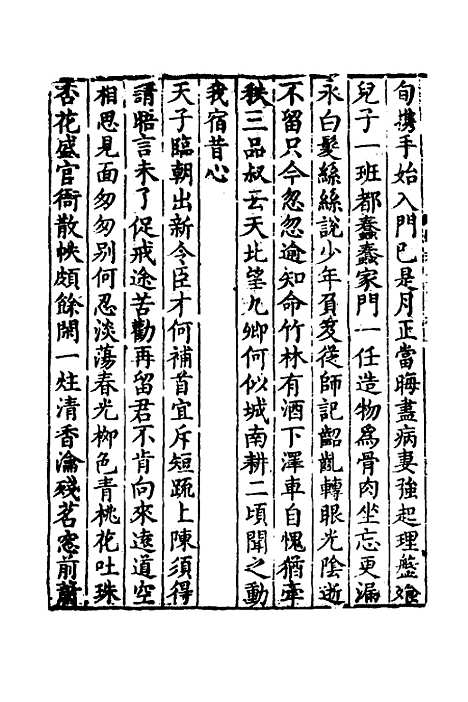 旬携手始入門巳是月正當晦盡病妻強起理盤飧
兒子一班都蠢蠢家門一任造物爲骨肉坐忘更漏
永白髮絲絲說少年負笈從師記齠齔轉眼光陰逝
不留只今忽忽逾知命竹林有酒下澤車自愧猶牽
秩三品叔云天北望九卿何似城南耕二頃聞之動
我宿昔心
天子臨朝出新令臣才何補首宜斥短疏上陳須得
請晤言未了促戒途苦勸再留君不肯向來遠道空
相思見面匆匆別何忍淡蕩春光柳色青桃花吐珠
杏花盛官衙散帙頗餘閑一炷清香瀹殘茗窓前